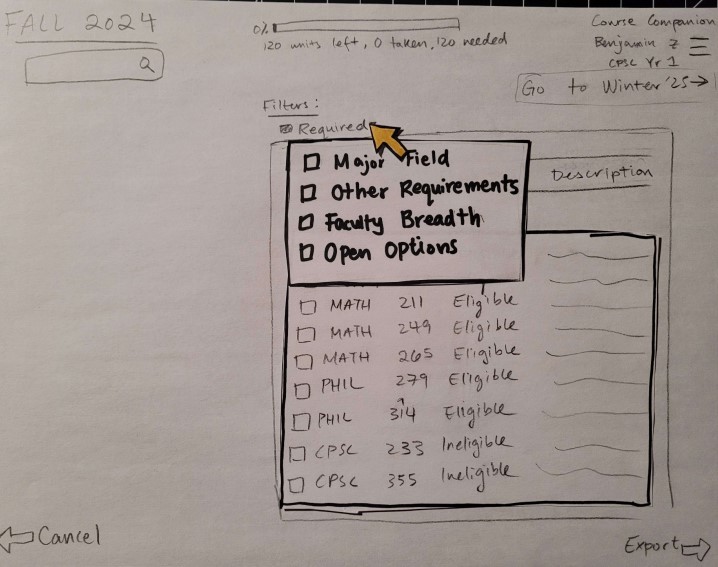 FALL 2024
0%
120 units left, 0 taken, 120 needed
Course Companion
Benjamin Z
CPSC Yr 1
Go to Winter '25→
Filters:
Required
Major Field
Other Requirements
Faculty Breadth
Open Options
Description
MATH 211 Eligible
MATH 249 Eligible
MATH 265 Eligible
PHIL 279 Eligible
PHIL 314 Eligible
CPSC 233 Ineligible
CPSC 355 Ineligible
Cancel
Export